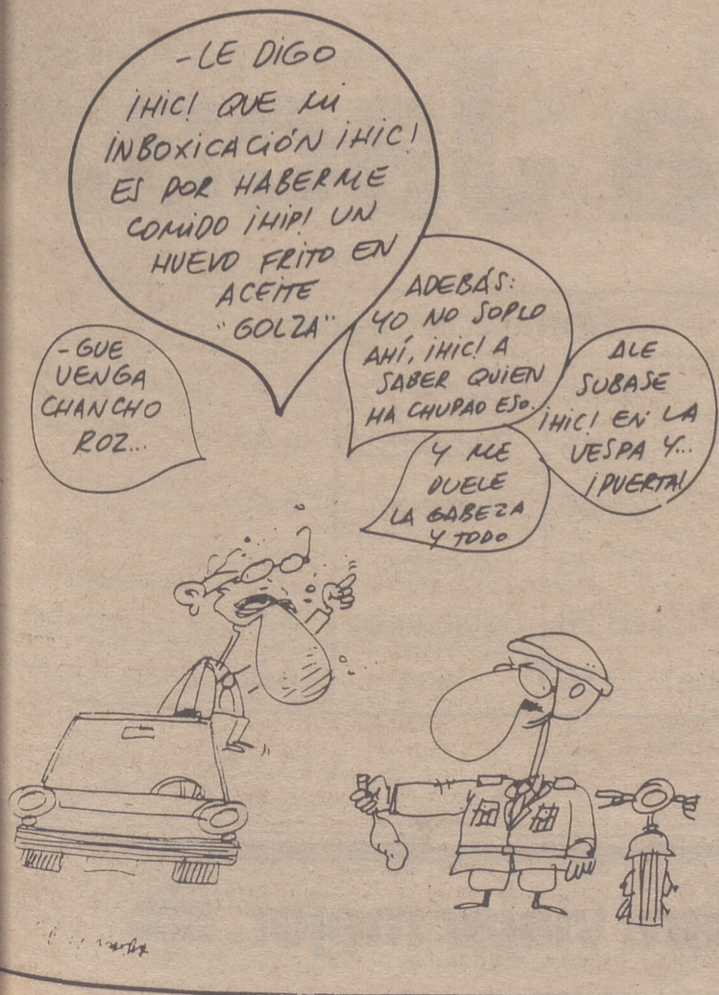 -LE DIGO
¡HIC! QUE MI
INBOXICACIÓN ¡HIC!
ES POR HABERME
COMIDO ¡HIP! UN
HUEVO FRITO EN
ACEITE
"GOLZA"
-GUE
VENGA
CHANCHO
ROZ...
ADEBÁS:
YO NO SOPLO
AHÍ, ¡HIC! A
SABER QUIEN
HA CHUPAO ESO.
Y ME
DUELE
LA GABEZA
Y TODO
ALE
SUBASE
¡HIC! EN LA
VESPA Y...
¡PUERTA!